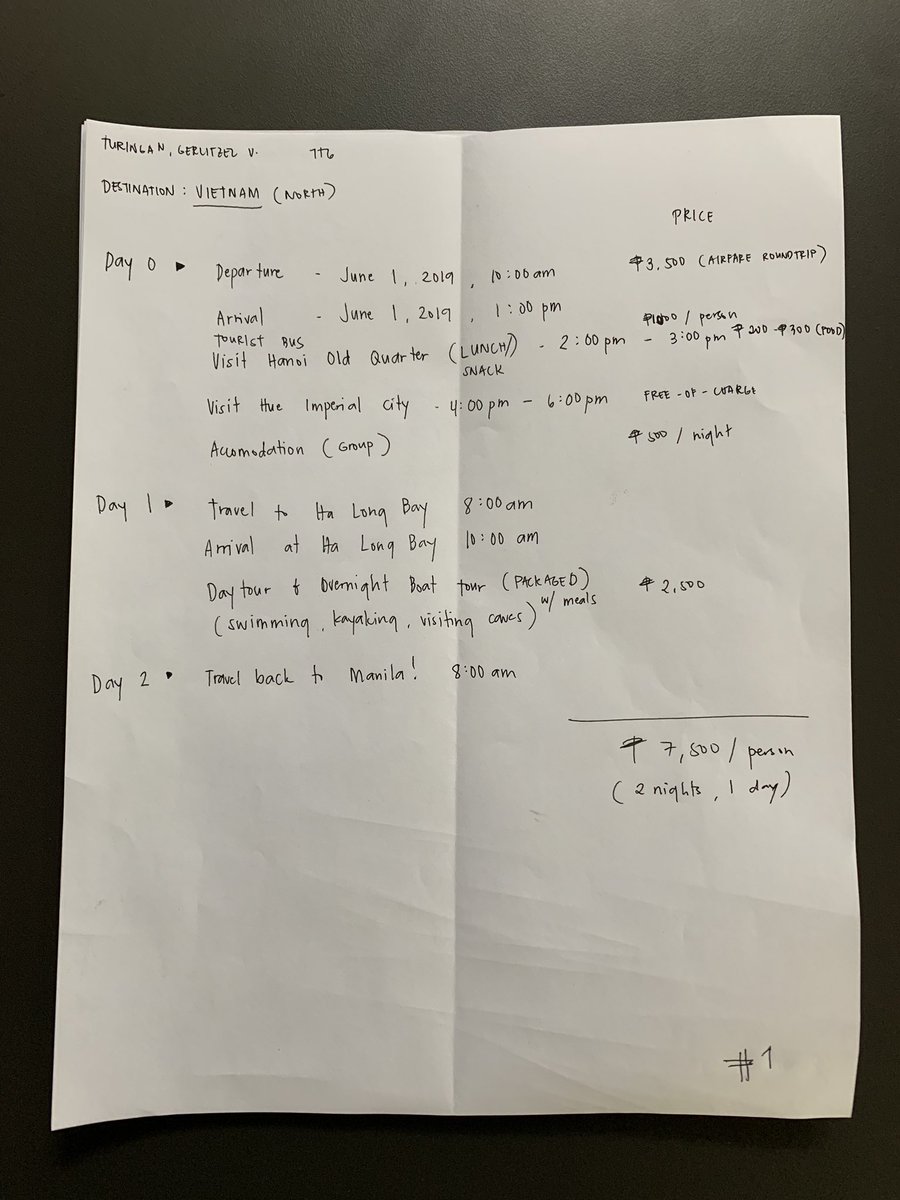 TURINGAN, GERLITZEL V. 776
DESTINATION : VIETNAM (NORTH)
PRICE
Day 0 ▶ Departure - June 1, 2019, 10:00 am ₱3,500 (AIRFARE ROUNDTRIP)
Arrival - June 1, 2019, 1:00 pm ₱1000 / person
TOURIST BUS
Visit Hanoi Old Quarter (LUNCH/) - 2:00 pm - 3:00 pm ₱200 - ₱300 (FOOD)
SNACK
Visit Hue Imperial City - 4:00 pm - 6:00 pm FREE-OF-CHARGE
Accomodation (Group) ₱500 / night
Day 1 ▶ Travel to Ha Long Bay 8:00 am
Arrival at Ha Long Bay 10:00 am
Day tour & Overnight Boat tour (PACKAGED) ₱2,500
(swimming, kayaking, visiting caves) w/ meals
Day 2 • Travel back to Manila! 8:00 am
₱7,500 / person
(2 nights, 1 day)
#1